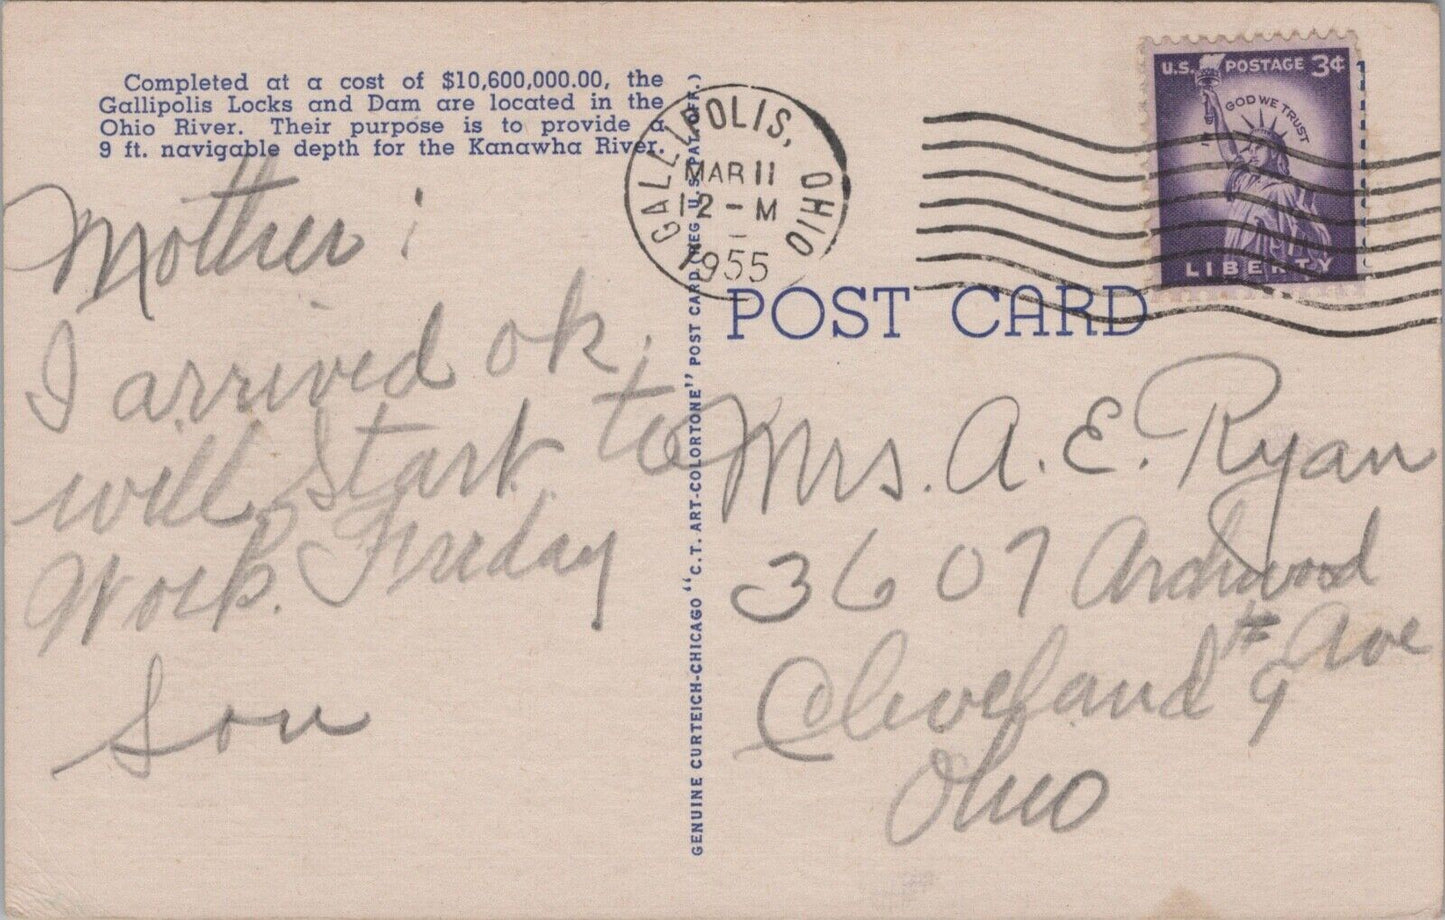 Completed at a cost of $10,600,000.00, the
Gallipolis Locks and Dam are located in the
Ohio River. Their purpose is to provide a
9 ft. navigable depth for the Kanawha River.
Mother:
I arrived ok.
will start to
Work. Friday
Son
GENUINE CURTEICH-CHICAGO "C.T. ART-COLORTONE" POST CARD (REG. U.S. PAT. OFF.)
GALLIPOLIS, OHIO
MAR 11
12 - M
1955
U.S. POSTAGE 3¢
IN GOD WE TRUST
LIBERTY
POST CARD
Mrs. A. E. Ryan
3607 Archwood
Ave
Cleveland # 9
Ohio